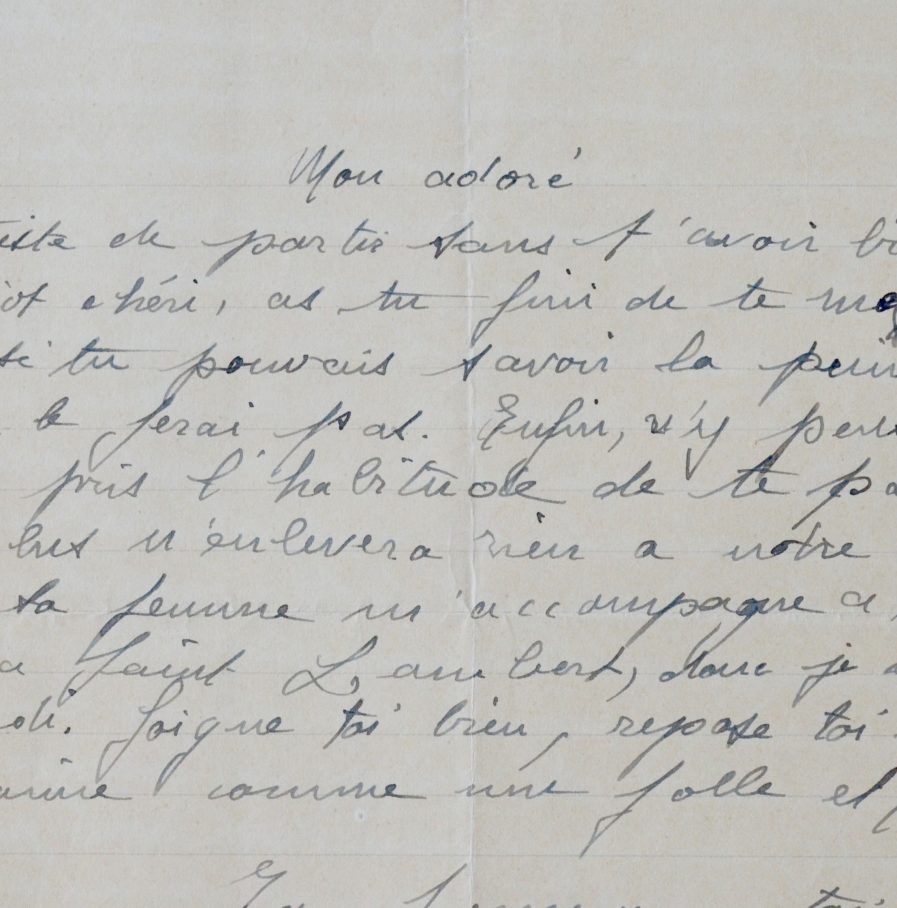 Mon adoré
iste de partir sans t'avoir bi
jot chéri, as tu fini de te mo
si tu pouvais savoir la pein
le ferai pas. Enfin, n'y pens
pris l'habitude de te pa
lus n'enlevera rien a notre
ta femme m'accompagne a
a Saint Lambert, donc je
di. Soigne toi bien, repose toi
aime comme une folle et